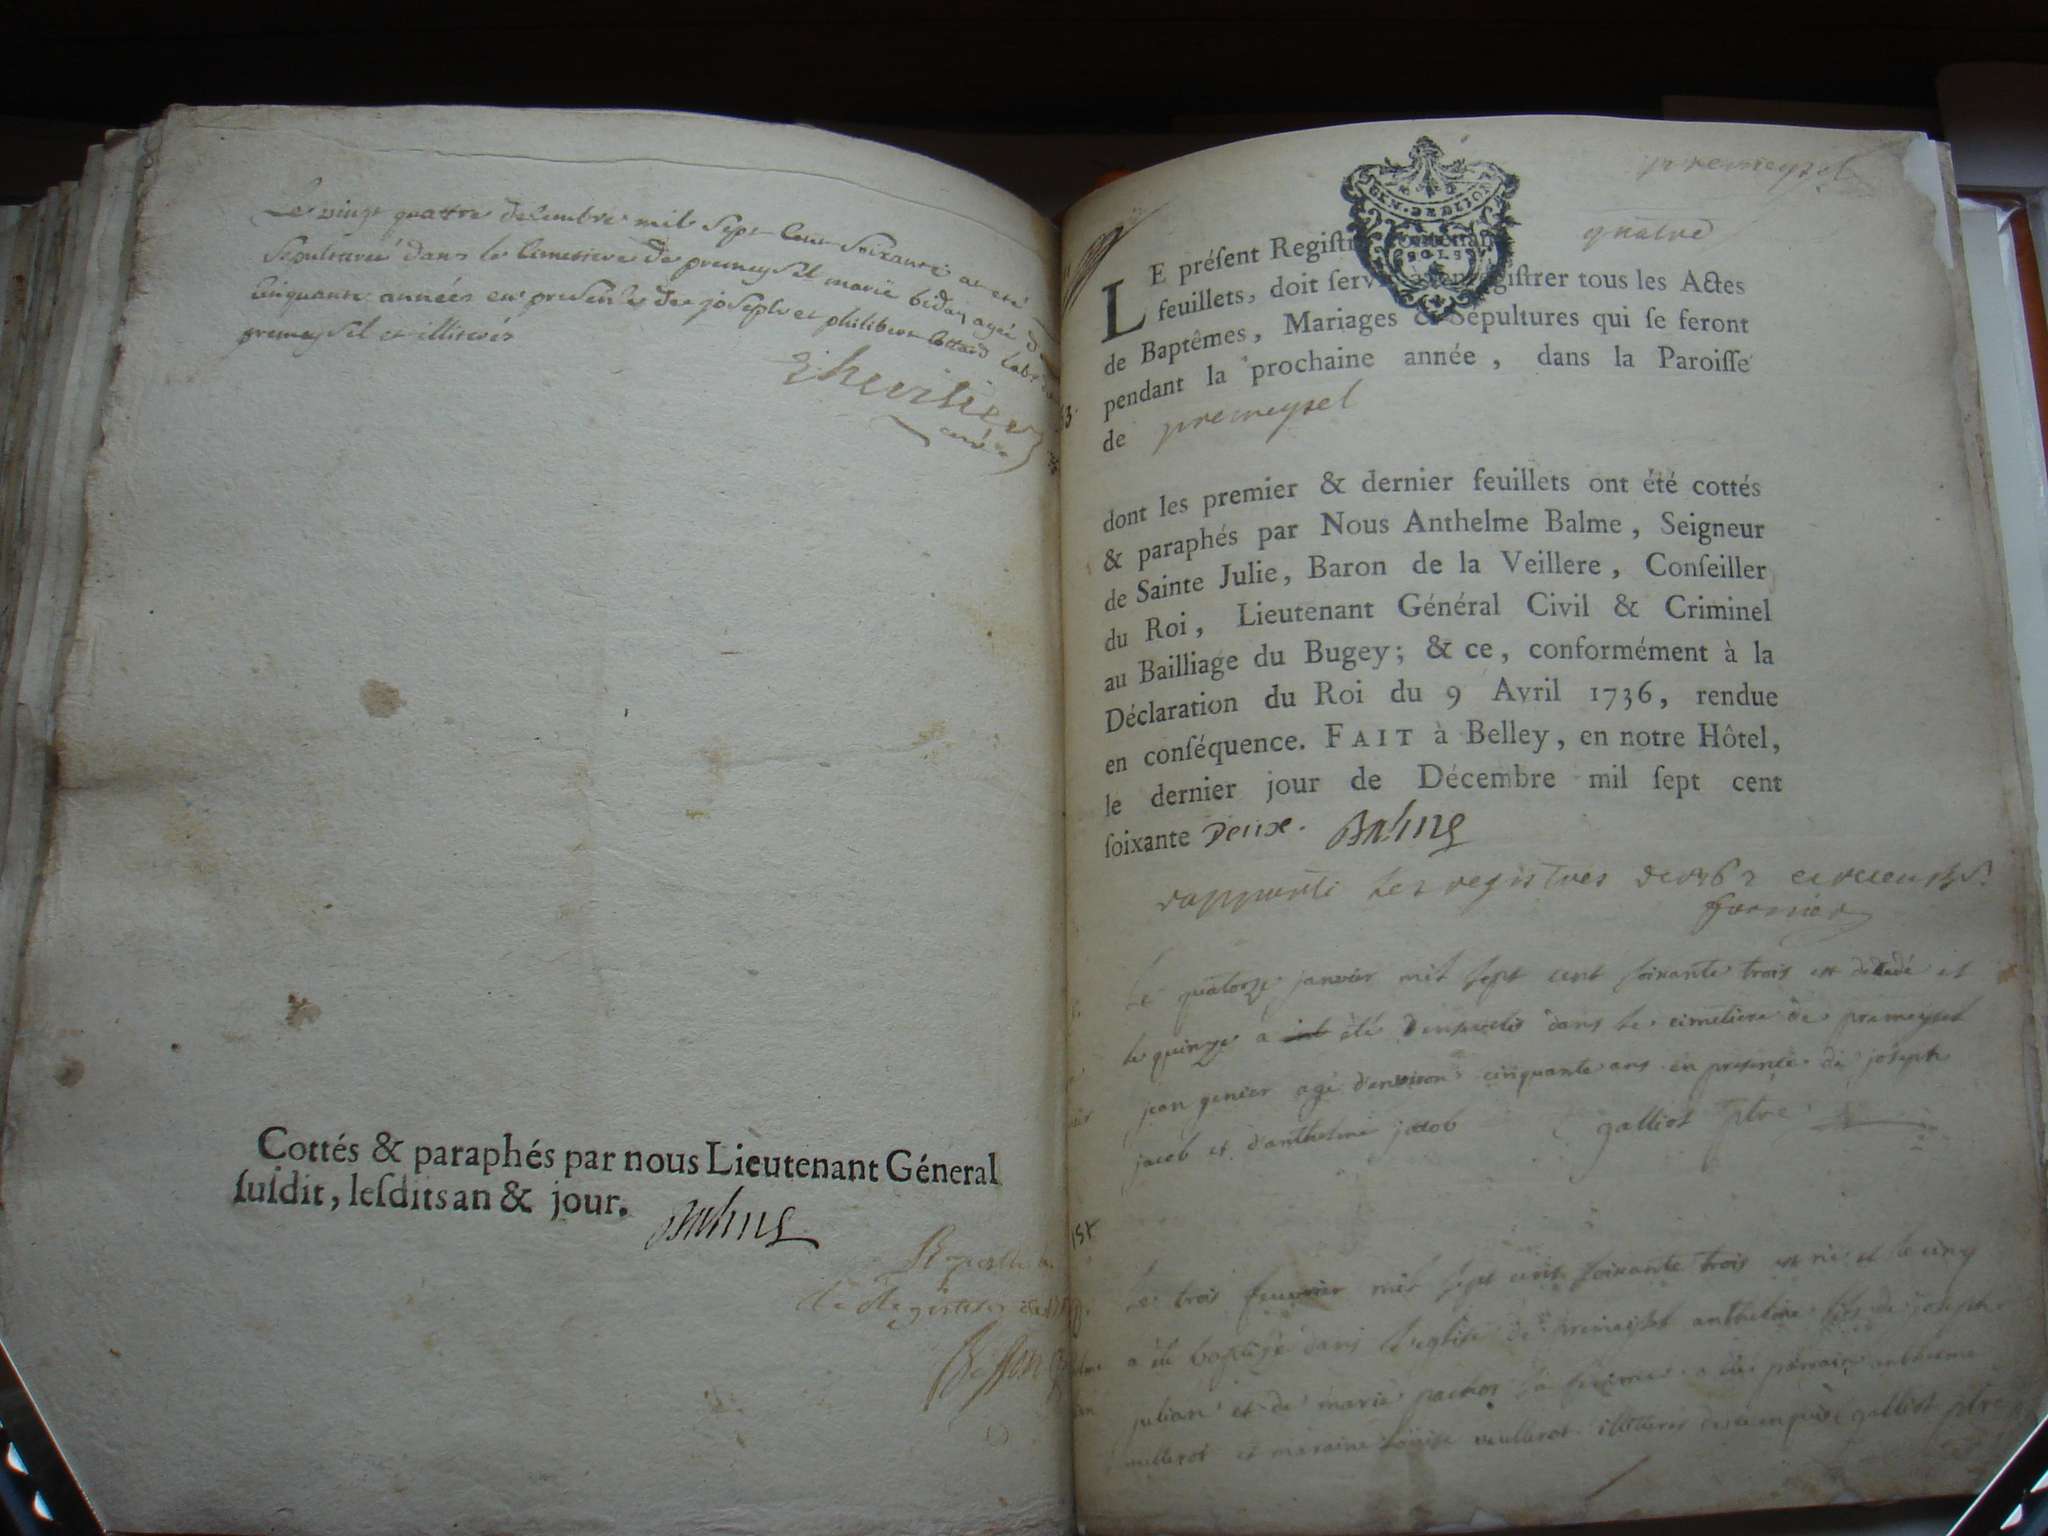 Le vingt quattre decembre mil sept cent soixante a eté
sepulturée dans le cimetiere de premeysel marie bidan agée d
cinquante années en presence de joseph et philibert cottard lab
premeysel et illiterés
curé
Cottés & paraphés par nous Lieutenant Géneral
ſuſdit, leſdits an & jour. Balme
premeysel
LE préſent Regiſtre contenant quatre
feuillets, doit ſervir à enregiſtrer tous les Actes
de Baptêmes, Mariages & Sépultures qui ſe feront
pendant la prochaine année, dans la Paroiſſe
de premeysel
dont les premier & dernier feuillets ont été cottés
& paraphés par Nous Anthelme Balme, Seigneur
de Sainte Julie, Baron de la Veillere, Conſeiller
du Roi, Lieutenant Général Civil & Criminel
au Bailliage du Bugey; & ce, conformément à la
Déclaration du Roi du 9 Avril 1736, rendue
en conſéquence. FAIT à Belley, en notre Hôtel,
le dernier jour de Décembre mil ſept cent
ſoixante Deux. Balme
rapporté les registres de 1762
Le quatorze janvier mil sept cent soixante trois est decedé et
le quinze a été dans le cimetiere de premeysel
jean genier agé d'environ cinquante ans en presence de joseph
jacob et d'anthelme jacob galliot ptre
157
Le trois mil sept cent soixante trois est né et le cinq
a été baptisé dans l'eglise de premeysel anthelme fils de joseph
julian et de marie pachoz sa femme a été parrain anthelme
et maraine illiteres galliot ptre